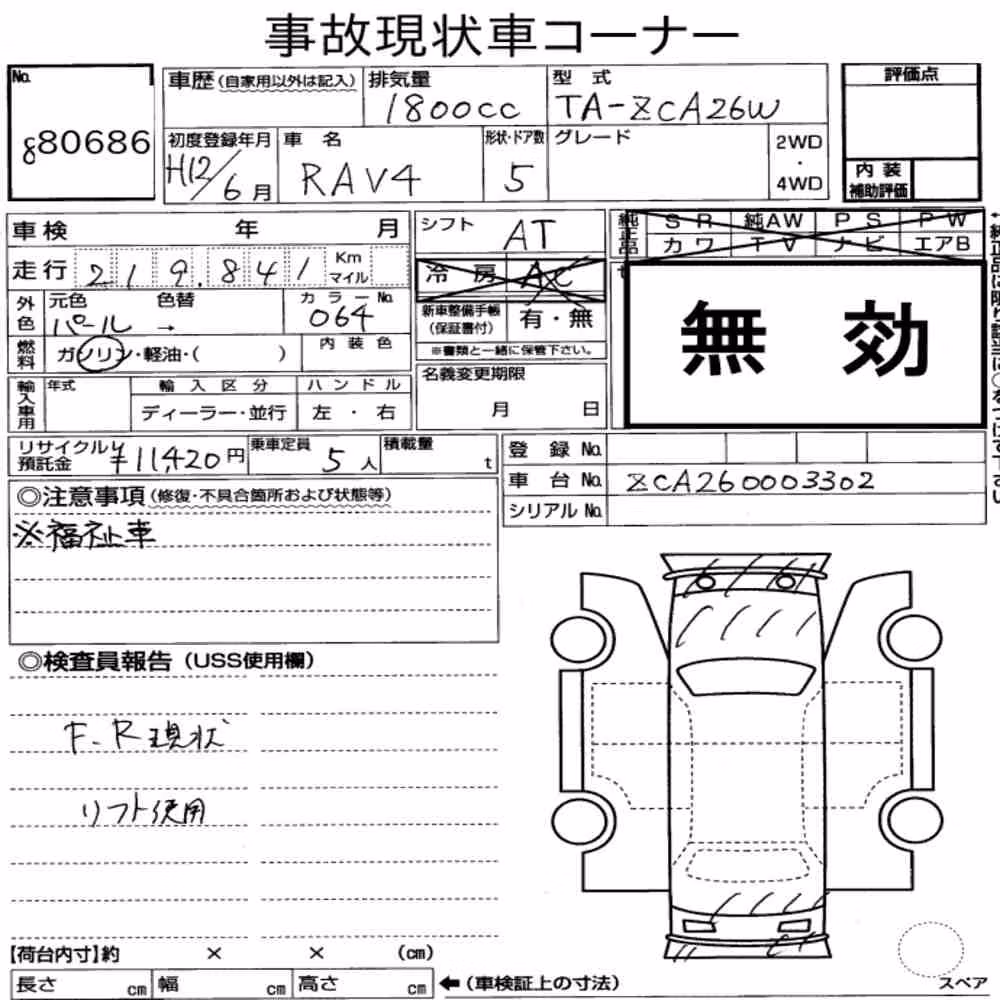 事故現状車コーナー
No.
880686
車歴(自家用以外は記入)
排気量
1800cc
型式
TA-ZCA26W
評価点
初度登録年月
H12/6月
車名
RAV4
形状・ドア数
5
グレード
2WD
・
4WD
内装
補助評価
車検 年 月
走行 219.841 Km マイル
シフト
AT
純正品
SR 純AW PS PW
カワ TV ナビ エアB
冷房 AC
外色
元色 色替
パール →
カラーNo.
064
新車整備手帳
(保証書付)
有・無
※書類と一緒に保管下さい。
無効
燃料
ガソリン・軽油・( )
内装色
輸入車用
年式
輸入区分
ディーラー・並行
ハンドル
左・右
名義変更期限
月 日
リサイクル
預託金
¥11,420円
乗車定員
5人
積載量
t
登録No.
車台No.
ZCA260003302
シリアルNo.
◎注意事項(修復・不具合箇所および状態等)
※福祉車
◎検査員報告(USS使用欄)
F、R現状
リフト使用
【荷台内寸】約 × × (cm)
長さ cm 幅 cm 高さ cm
←(車検証上の寸法)
スペア